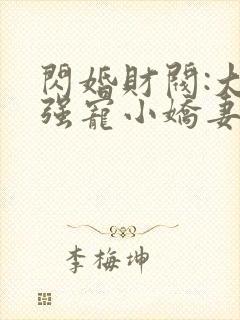 閃婚財閥:大
强寵小嬌妻
李梅坤